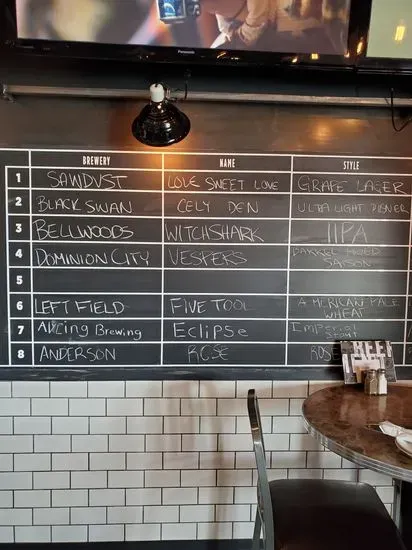 Panasonic
BREWERY NAME STYLE
1 SAWDUST LOVE SWEET LOVE GRAPE LAGER
2 BLACK SWAN CELY DEN ULTRA LIGHT PILSNER
3 BELLWOODS WITCHSHARK IIPA
4 DOMINION CITY VESPERS BARREL AGED
SAISON
5
6 LEFT FIELD FIVE TOOL AMERICAN PALE
WHEAT
7 Brewing Eclipse Imperial
Stout
8 ANDERSON ROSE ROSE
BEER